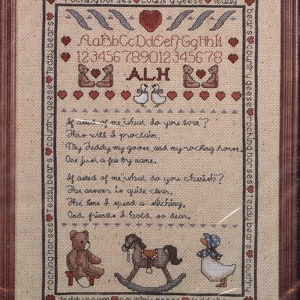 rocking horses ♥ country geese ♥ teddy
AaBbCcDdEeFfGgHhIi
1234567890123456 78
ALH
If asked of me what do you love?
This will I proclaim,
My Teddy, my goose, and my rocking horse,
Are just a few by name.
If asked of me what do you cherish?
The answer is quite clear,
The time I spend a stitching,
And friends I hold so dear.
rocking horses ♥ country geese ♥ teddy bears
teddy bears ♥ country geese ♥ rocking horses
teddy bears ♥ country geese ♥ rocking